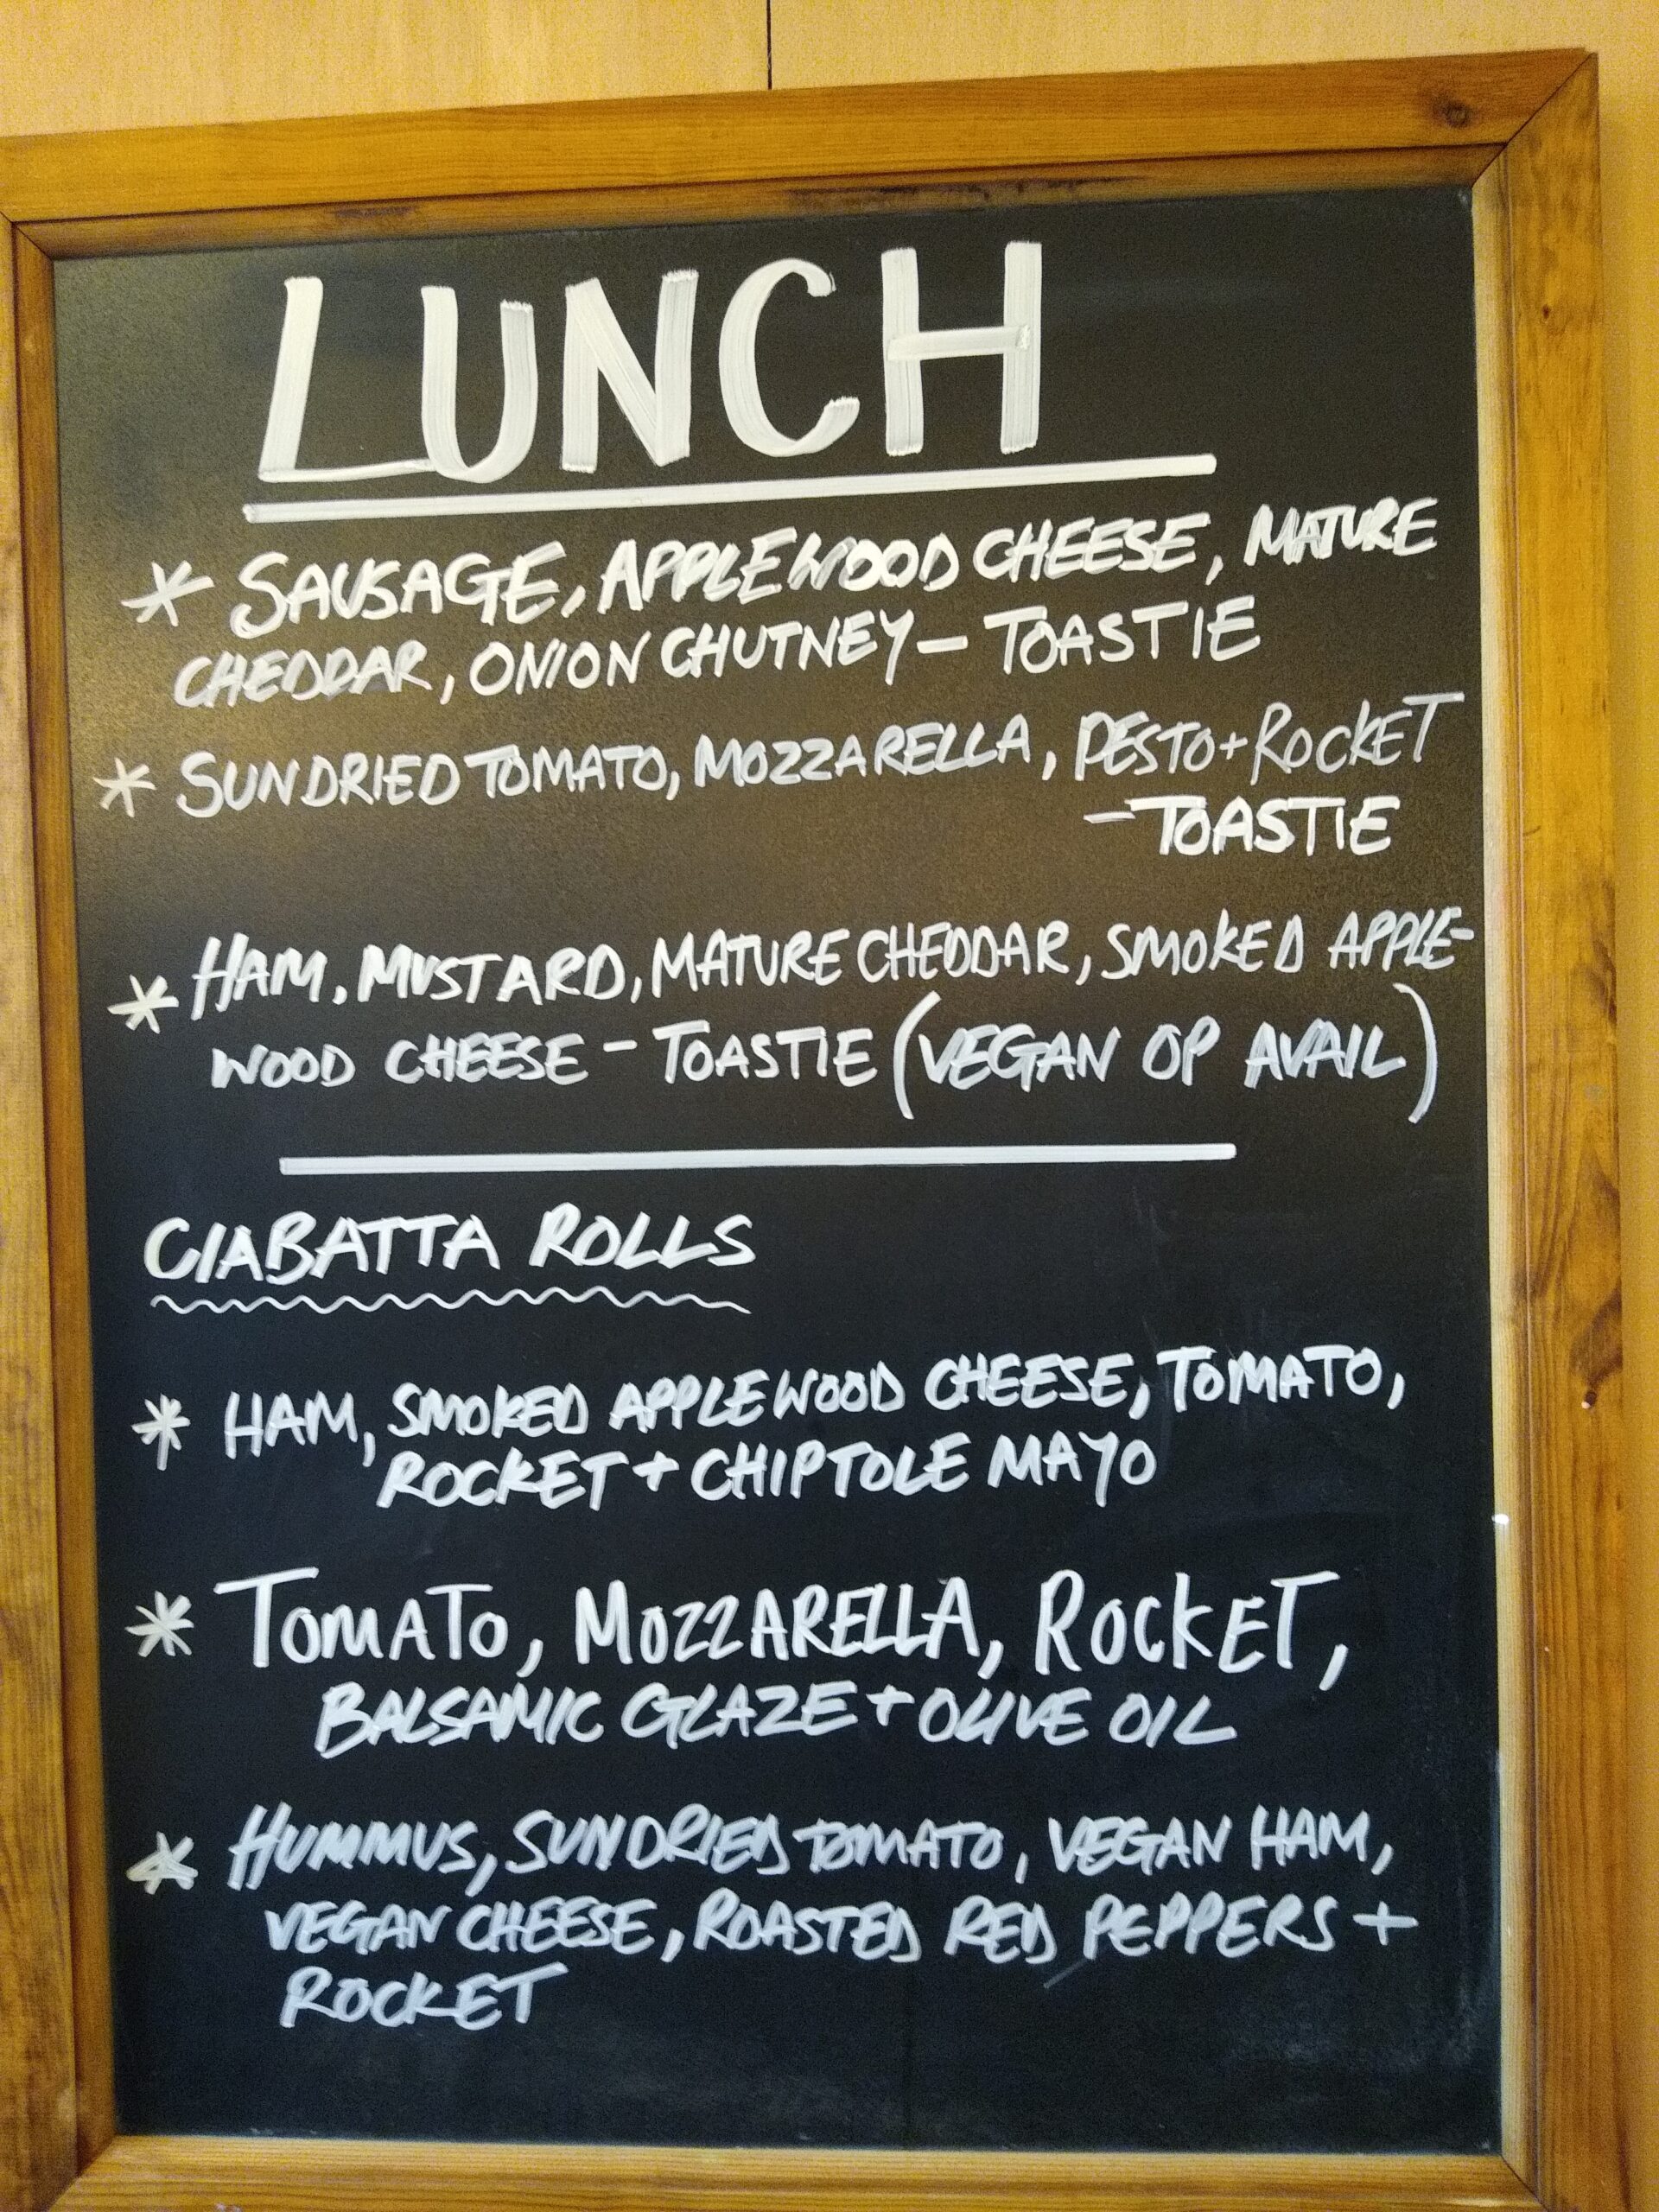 LUNCH
* SAUSAGE, APPLEWOOD CHEESE, MATURE
CHEDDAR, ONION CHUTNEY – TOASTIE
* SUNDRIED TOMATO, MOZZARELLA, PESTO + ROCKET
– TOASTIE
* HAM, MUSTARD, MATURE CHEDDAR, SMOKED APPLE-
WOOD CHEESE – TOASTIE (VEGAN OP AVAIL)
CIABATTA ROLLS
* HAM, SMOKED APPLEWOOD CHEESE, TOMATO,
ROCKET + CHIPTOLE MAYO
* TOMATO, MOZZARELLA, ROCKET,
BALSAMIC GLAZE + OLIVE OIL
* HUMMUS, SUNDRIED TOMATO, VEGAN HAM,
VEGAN CHEESE, ROASTED RED PEPPERS +
ROCKET